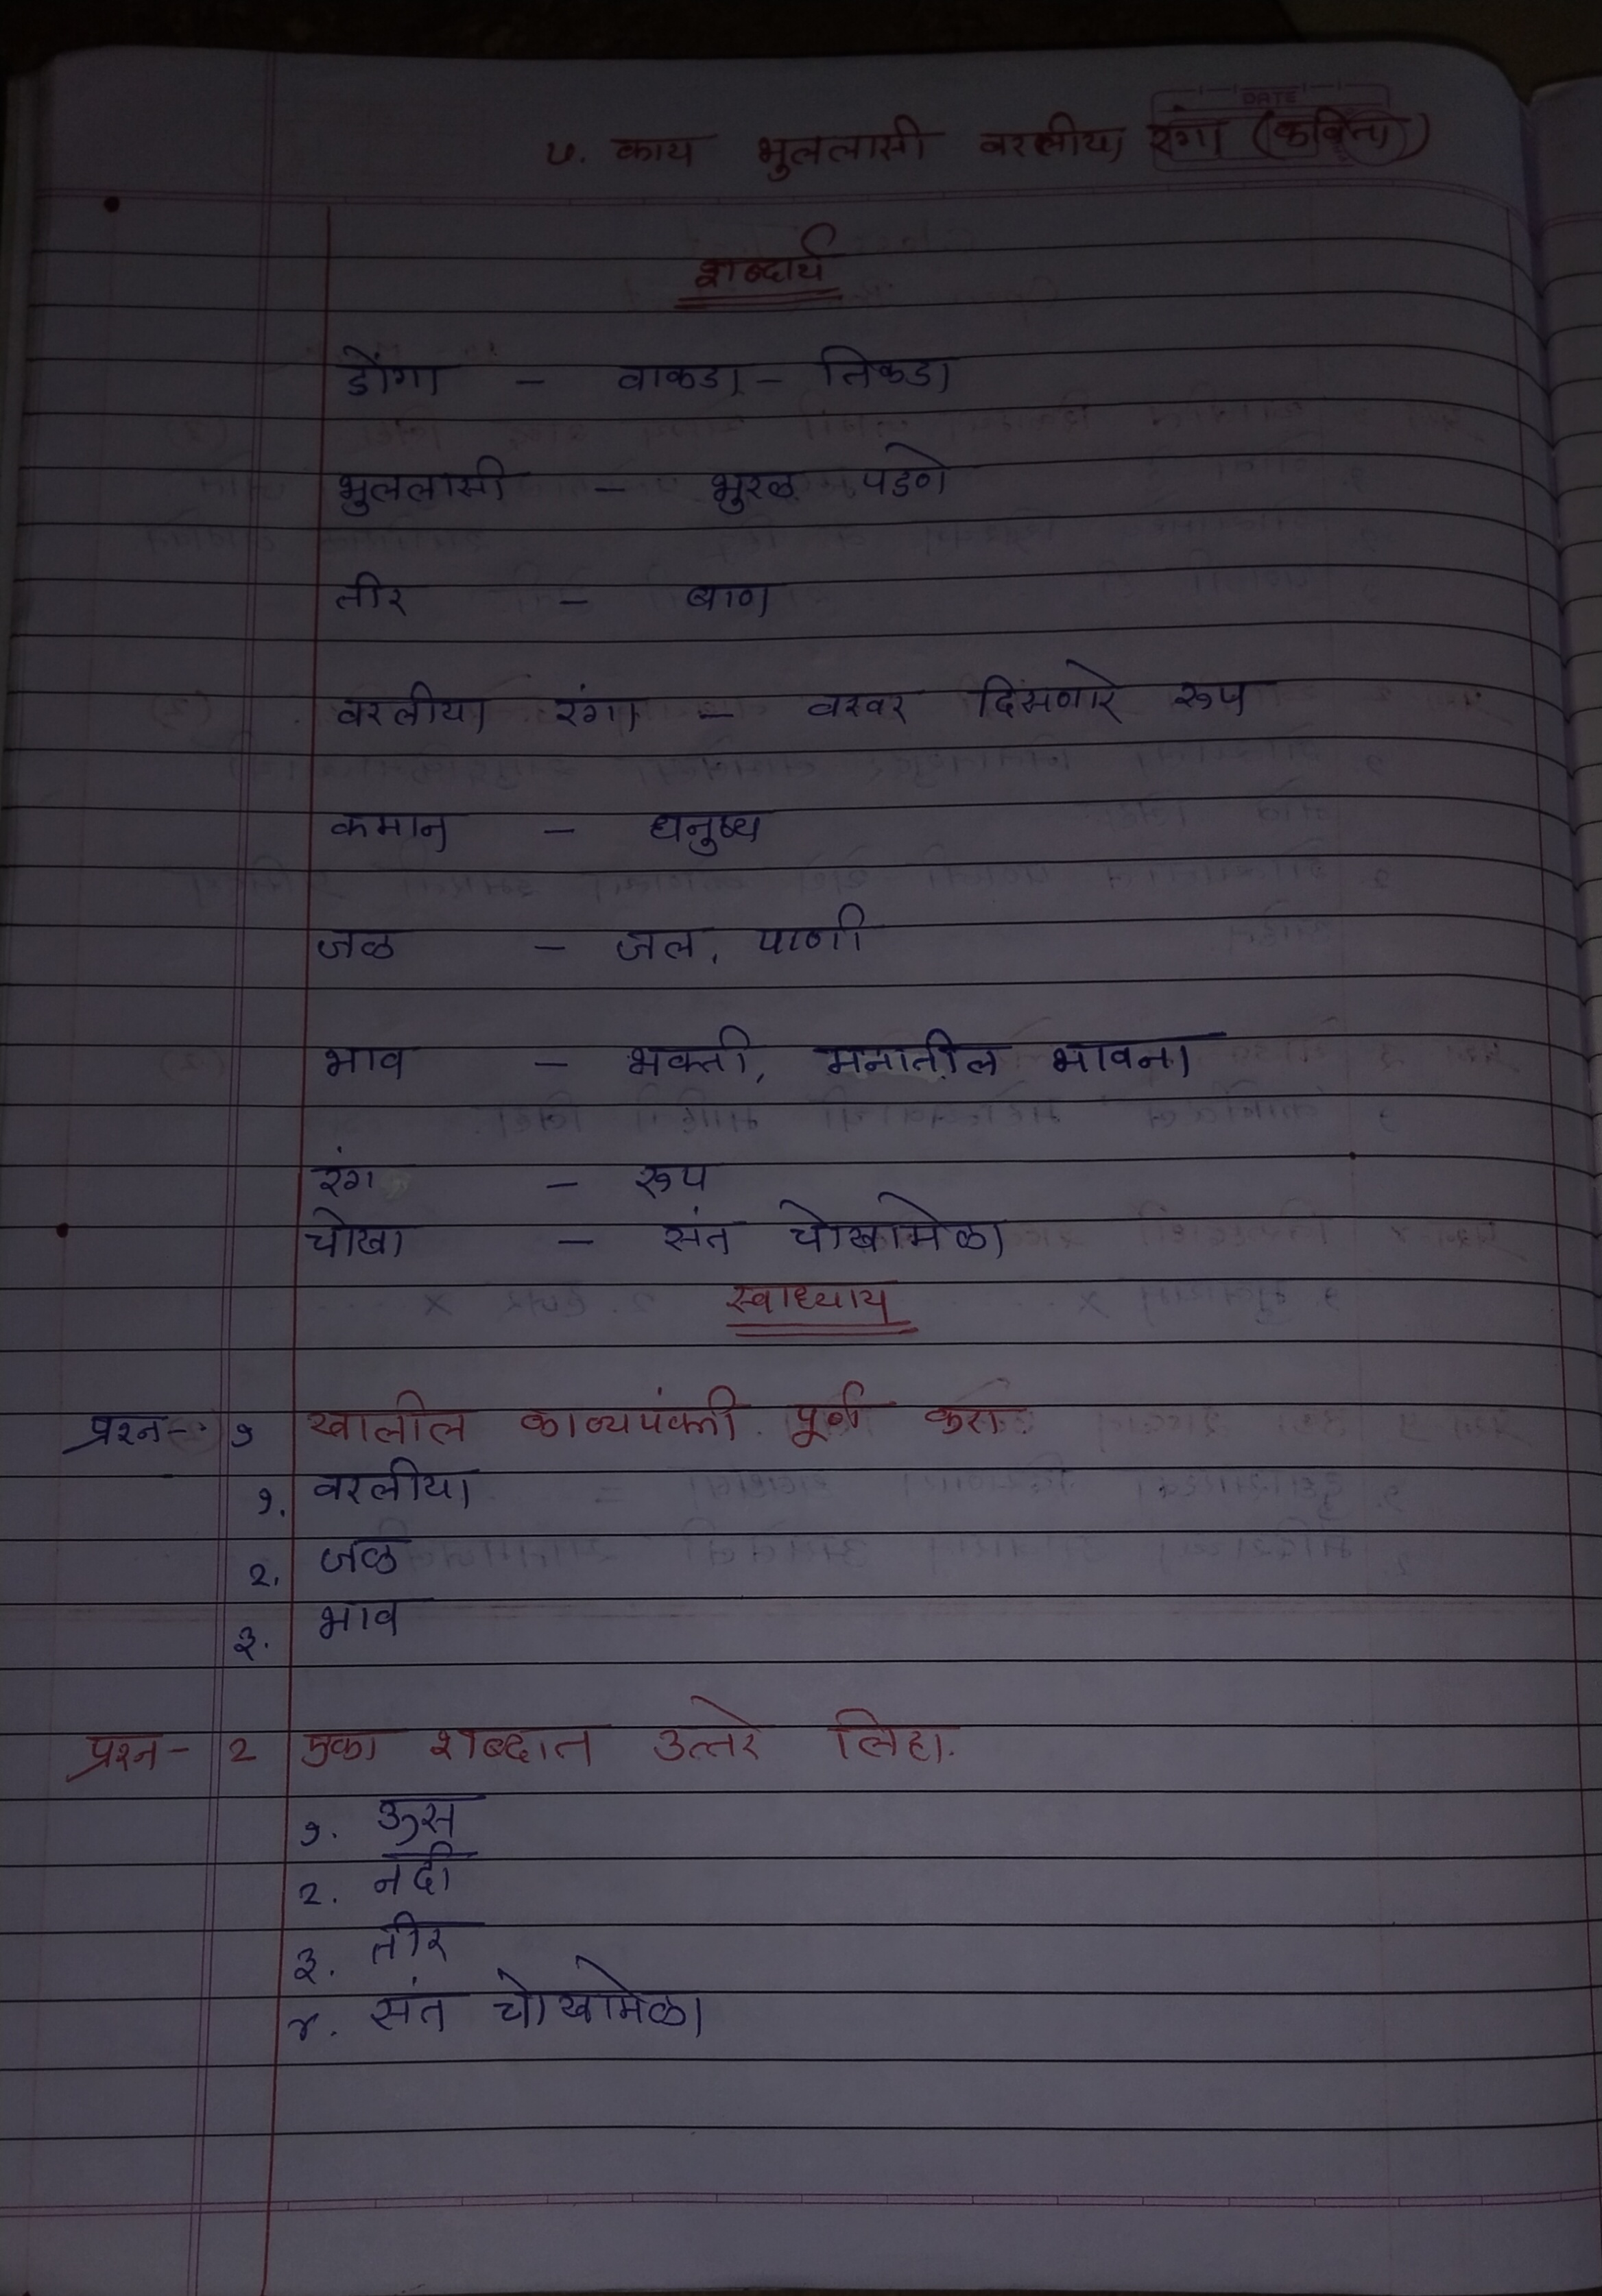 ५. काय भुललासी वरलीया रंगा (कविता)
DATE
शब्दार्थ
डोंगा - वाकडा - तिकडा
भुललासी - भुरळ पडणे
तीर - बाण
वरलीया रंगा - वरवर दिसणारे रूप
कमान - धनुष्य
जळ - जल, पाणी
भाव - भक्ती, मनातील भावना
रंग - रूप
चोखा - संत चोखामेळा
स्वाध्याय
प्रश्न - १ खालील काव्यपंक्ती पूर्ण करा.
१. वरलीया
२. जळ
३. भाव
प्रश्न - २ एका शब्दात उत्तरे लिहा.
१. ऊस
२. नदी
३. तीर
४. संत चोखामेळा